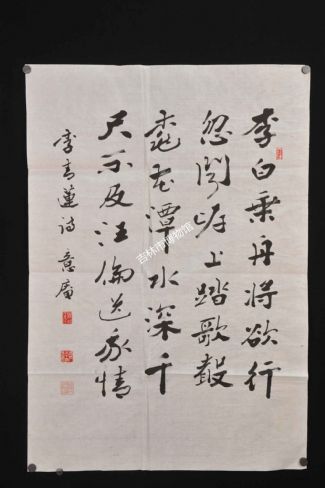 李白乗舟将欲行
忽聞岸上踏歌聲
桃花潭水深千
尺不及汪倫送我情
李青蓮詩 意庵
吉林市博物馆